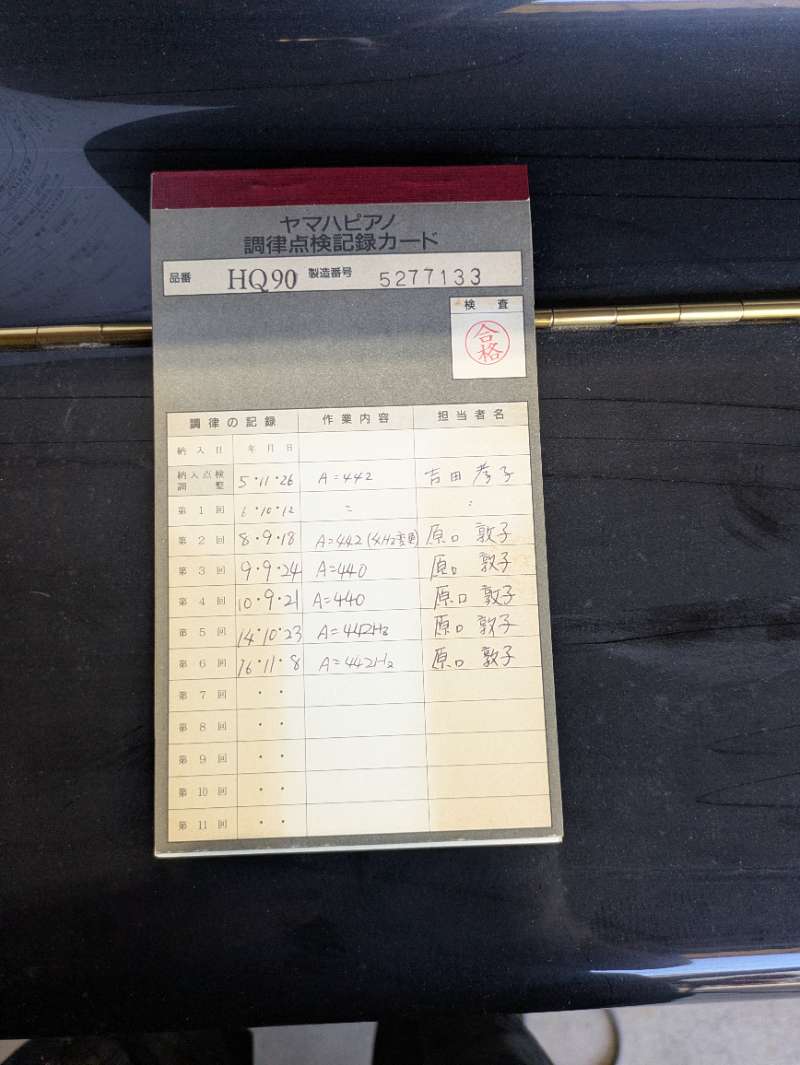 ヤマハピアノ
調律点検記録カード
品番 HQ90 製造番号 5277133
検査
合格
調律の記録 作業内容 担当者名
納入日 年月日
納入点検調整 5・11・26 A=442 吉田
第1回 6・10・12 〃 〃
第2回 8・9・18 A=442 (4Hz変更) 原口 敦子
第3回 9・9・24 A=440 原口 敦子
第4回 10・9・21 A=440 原口 敦子
第5回 14・10・23 A=442Hz 原口 敦子
第6回 16・11・8 A=442Hz 原口 敦子
第7回 ・・
第8回 ・・
第9回 ・・
第10回 ・・
第11回 ・・